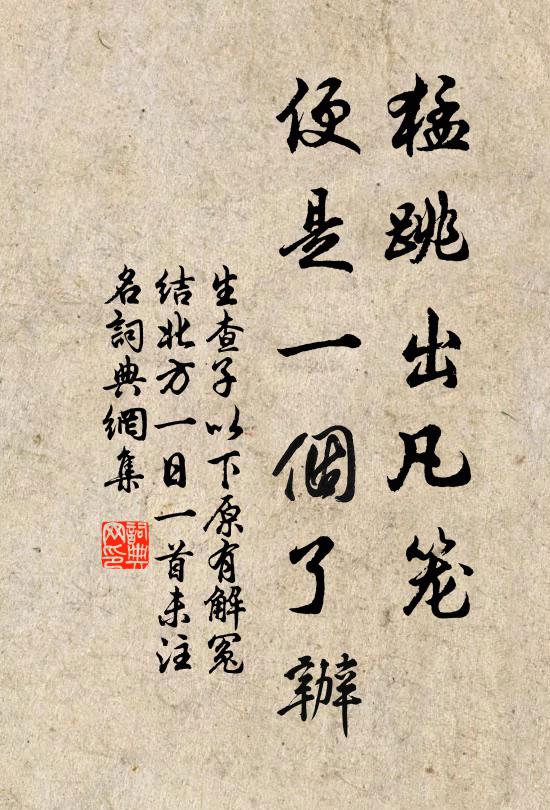 猛跳出凡笼
便是一個了辦
生查子以下原有解冤
结北方一日一首未注
名詞典網集
詞典网印